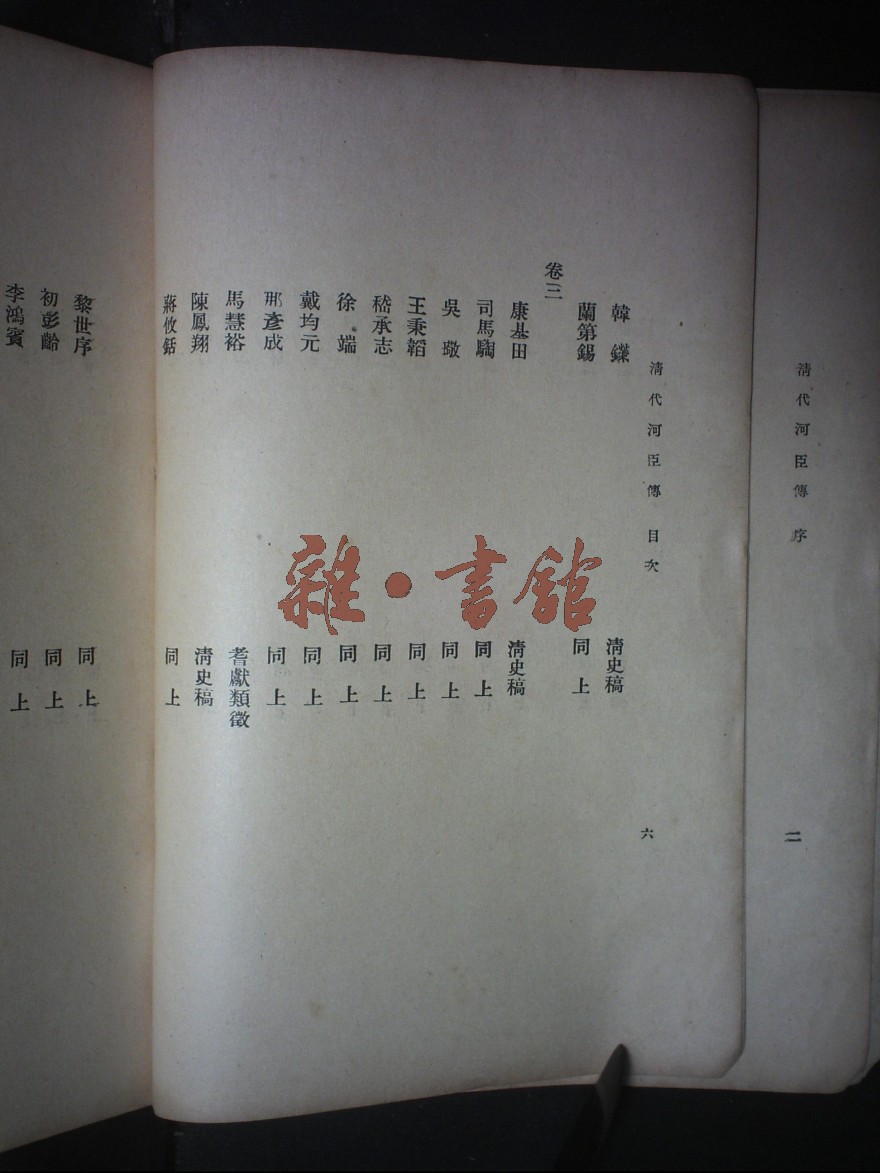 清代河臣傳 序
二
清代河臣傳 目次
六
韓鑅 清史稿
蘭第錫 同上
卷三
康基田 清史稿
司馬騊 同上
吳璥 同上
王秉韜 同上
嵇承志 同上
徐端 同上
戴均元 同上
那彥成 同上
馬慧裕 耆獻類徵
陳鳳翔 清史稿
蔣攸銛 同上
黎世序 同上
初彭齡 同上
李鴻賓 同上
雜·書館